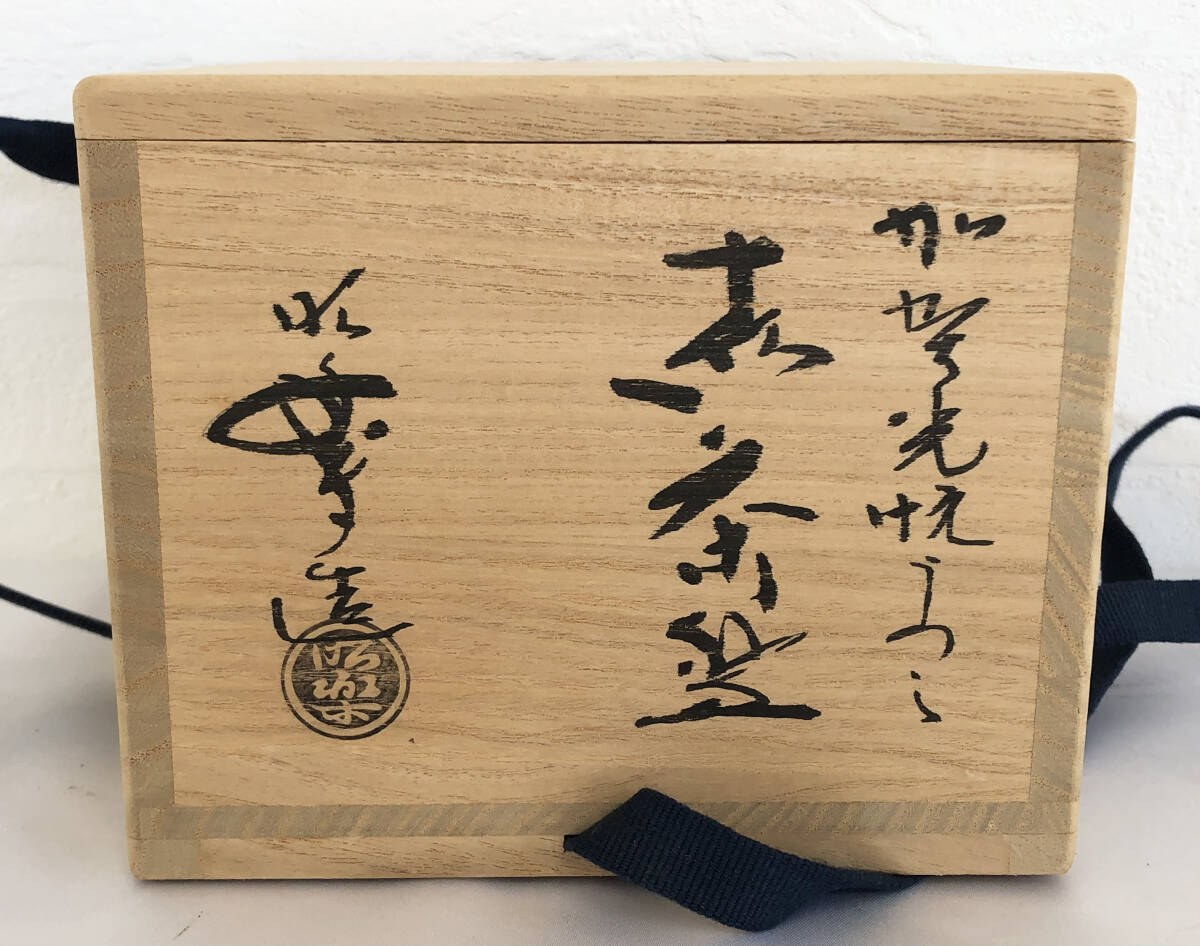 加賀光悦うつし
赤茶盌
昭楽造
昭樂